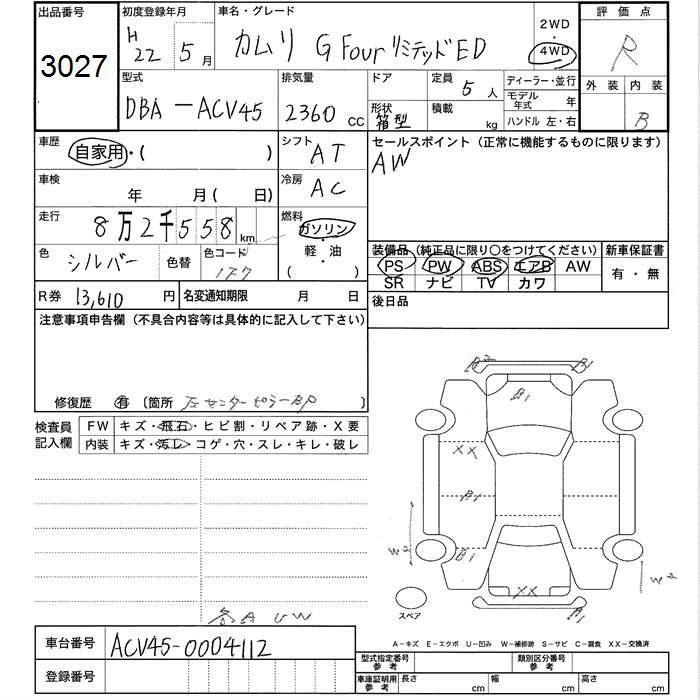 出品番号 初度登録年月 車名・グレード 2WD 評価点
3027 H 22 5月 カムリ G Four リミテッドED 4WD R
型式 排気量 ドア 定員 5人 ディーラー・並行 外装 内装
DBA-ACV45 2360 CC 形状 箱型 積載 kg モデル年式 年 B
ハンドル 左・右
車歴 自家用・( ) シフト AT セールスポイント (正常に機能するものに限ります)
AW
車検 年 月( 日) 冷房 AC
走行 8万2千558 km 燃料 ガソリン・軽・油 ( )
色 シルバー 色替 色コード
装備品 (純正品に限り〇をつけてください) 新車保証書
PS PW ABS エアB AW 有・無
SR ナビ TV カワ
R券 13,610円 名変通知期限 月 日 後日品
注意事項申告欄 (不具合内容等は具体的に記入して下さい)
修復歴 有 〔箇所 左センターピラーBP 〕
検査員記入欄 FW キズ・飛石・ヒビ割・リペア跡・X要
内装 キズ・汚レ・コゲ・穴・スレ・キレ・破レ
B2 B1
B1
XX
B1
W2 B1
W2
XX
B1
スペア
各A UW
車台番号 ACV45-0004112
登録番号
A-キズ E-エクボ U-凹み W-補修跡 S-サビ C-腐食 XX-交換済
型式指定番号 参考 類別区分番号 参考
車庫証明用 参考 長さ cm 幅 cm 高さ cm